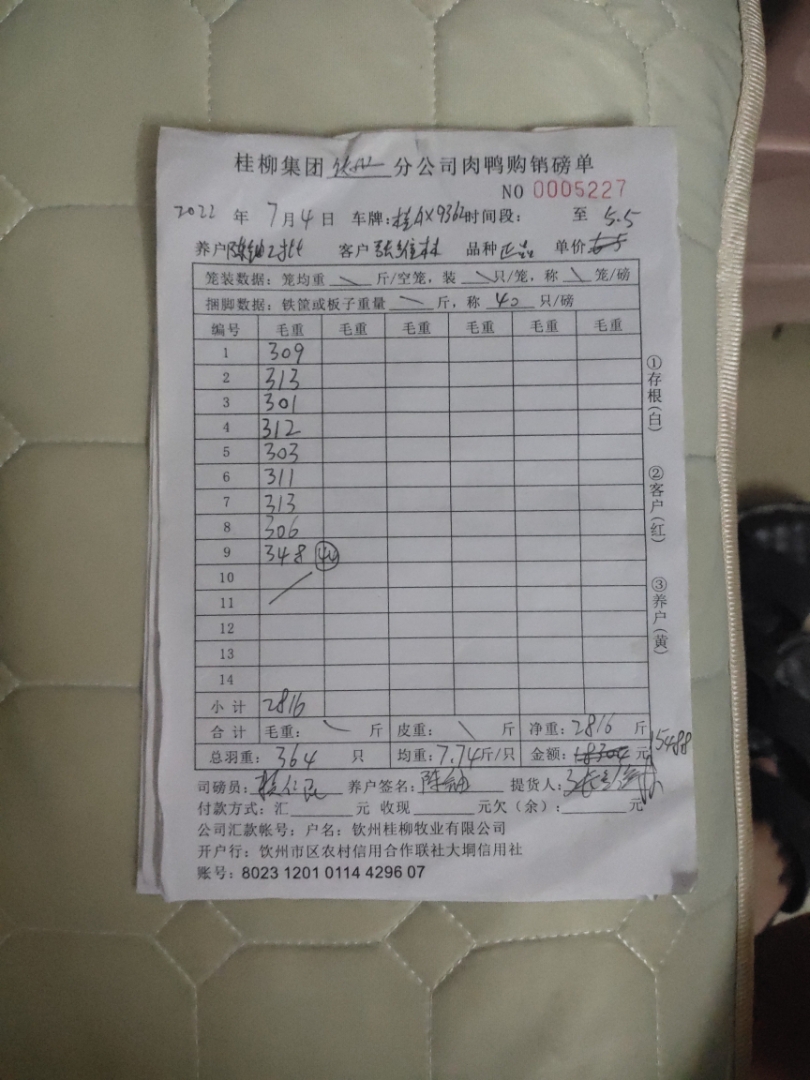 桂柳集团 钦州 分公司肉鸭购销磅单
NO 0005227
2022 年 7月4日 车牌:桂 时间段: 至 5.5
养户 陈 客户 张维林 品种 正品 单价
笼装数据:笼均重 斤/空笼,装 只/笼,称 笼/磅
捆脚数据:铁筐或板子重量 斤,称 40 只/磅
编号 毛重 毛重 毛重 毛重 毛重 毛重
1 309
2 313
3 301
4 312
5 303
6 311
7 313
8 306
9 348
10
11
12
13
14
小计 2816
合计 毛重: 斤 皮重: 斤 净重:2816 斤
总羽重:364 只 均重:7.74斤/只 金额:18304 元 15488
司磅员: 养户签名:陈 提货人:张维林
付款方式:汇 元 收现 元欠(余): 元
公司汇款帐号:户名:钦州桂柳牧业有限公司
开户行:钦州市区农村信用合作联社大垌信用社
账号:8023 1201 0114 4296 07
①存根(白)
②客户(红)
③养户(黄)